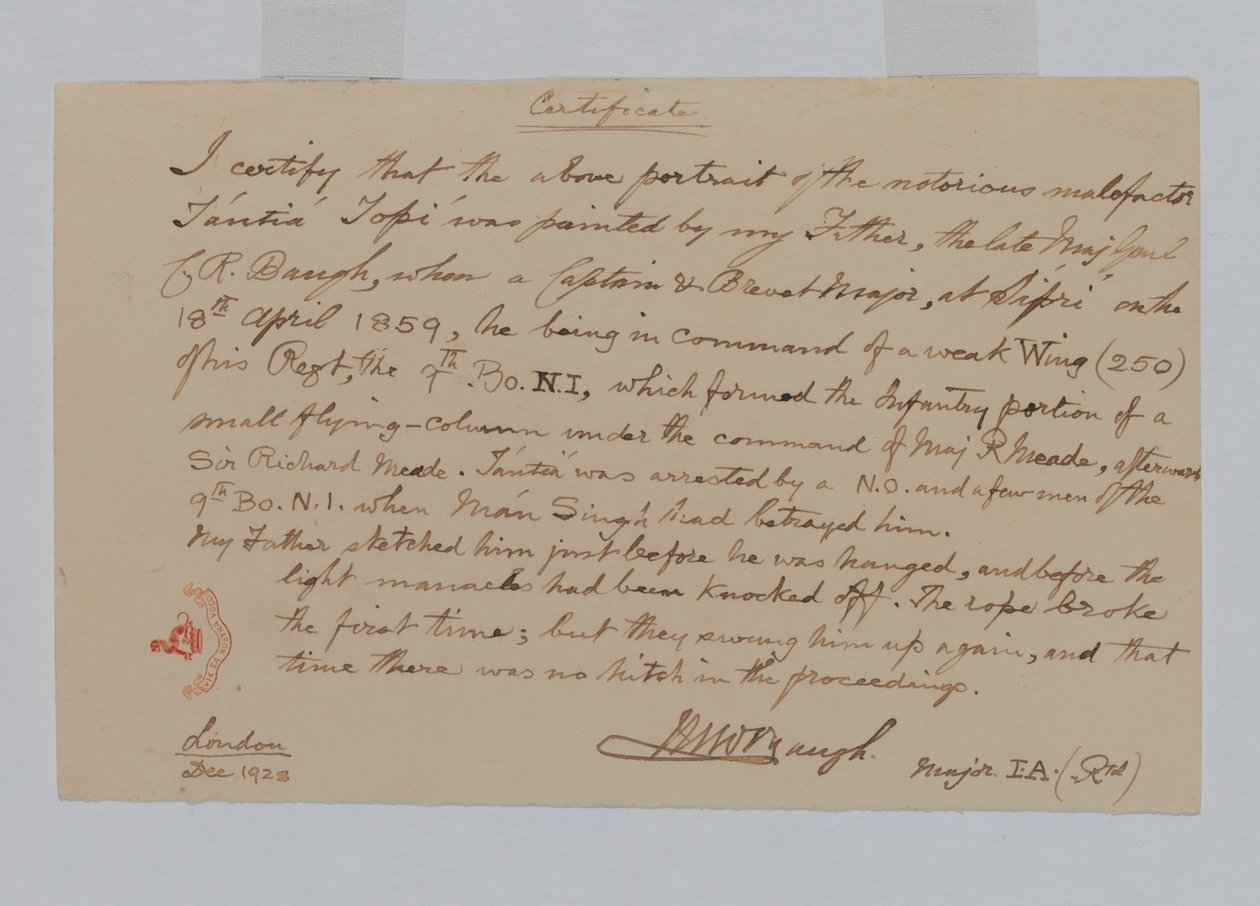 Certificate
I certify that the above portrait of the notorious malefactor
Tántiá Topi was painted by my Father, the late Maj Genl
C. R. Baugh, when a Captain & Brevet Major, at Sípri on the
18th April 1859, he being in command of a weak Wing (250)
of his Regt, the 9th Bo. N.I., which formed the Infantry portion of a
small flying-column under the command of Maj R Meade, afterwards
Sir Richard Meade. Tántiá was arrested by a N.O. and a few men of the
9th Bo. N.I. when Mán Singh had betrayed him.
My Father sketched him just before he was hanged, and before the
light manacles had been knocked off. The rope broke
the first time; but they swung him up again, and that
time there was no hitch in the proceedings.
VIX EA NOSTRA VOCO
Baugh.
Major. I.A. (Rtd)
London
Dec 1928